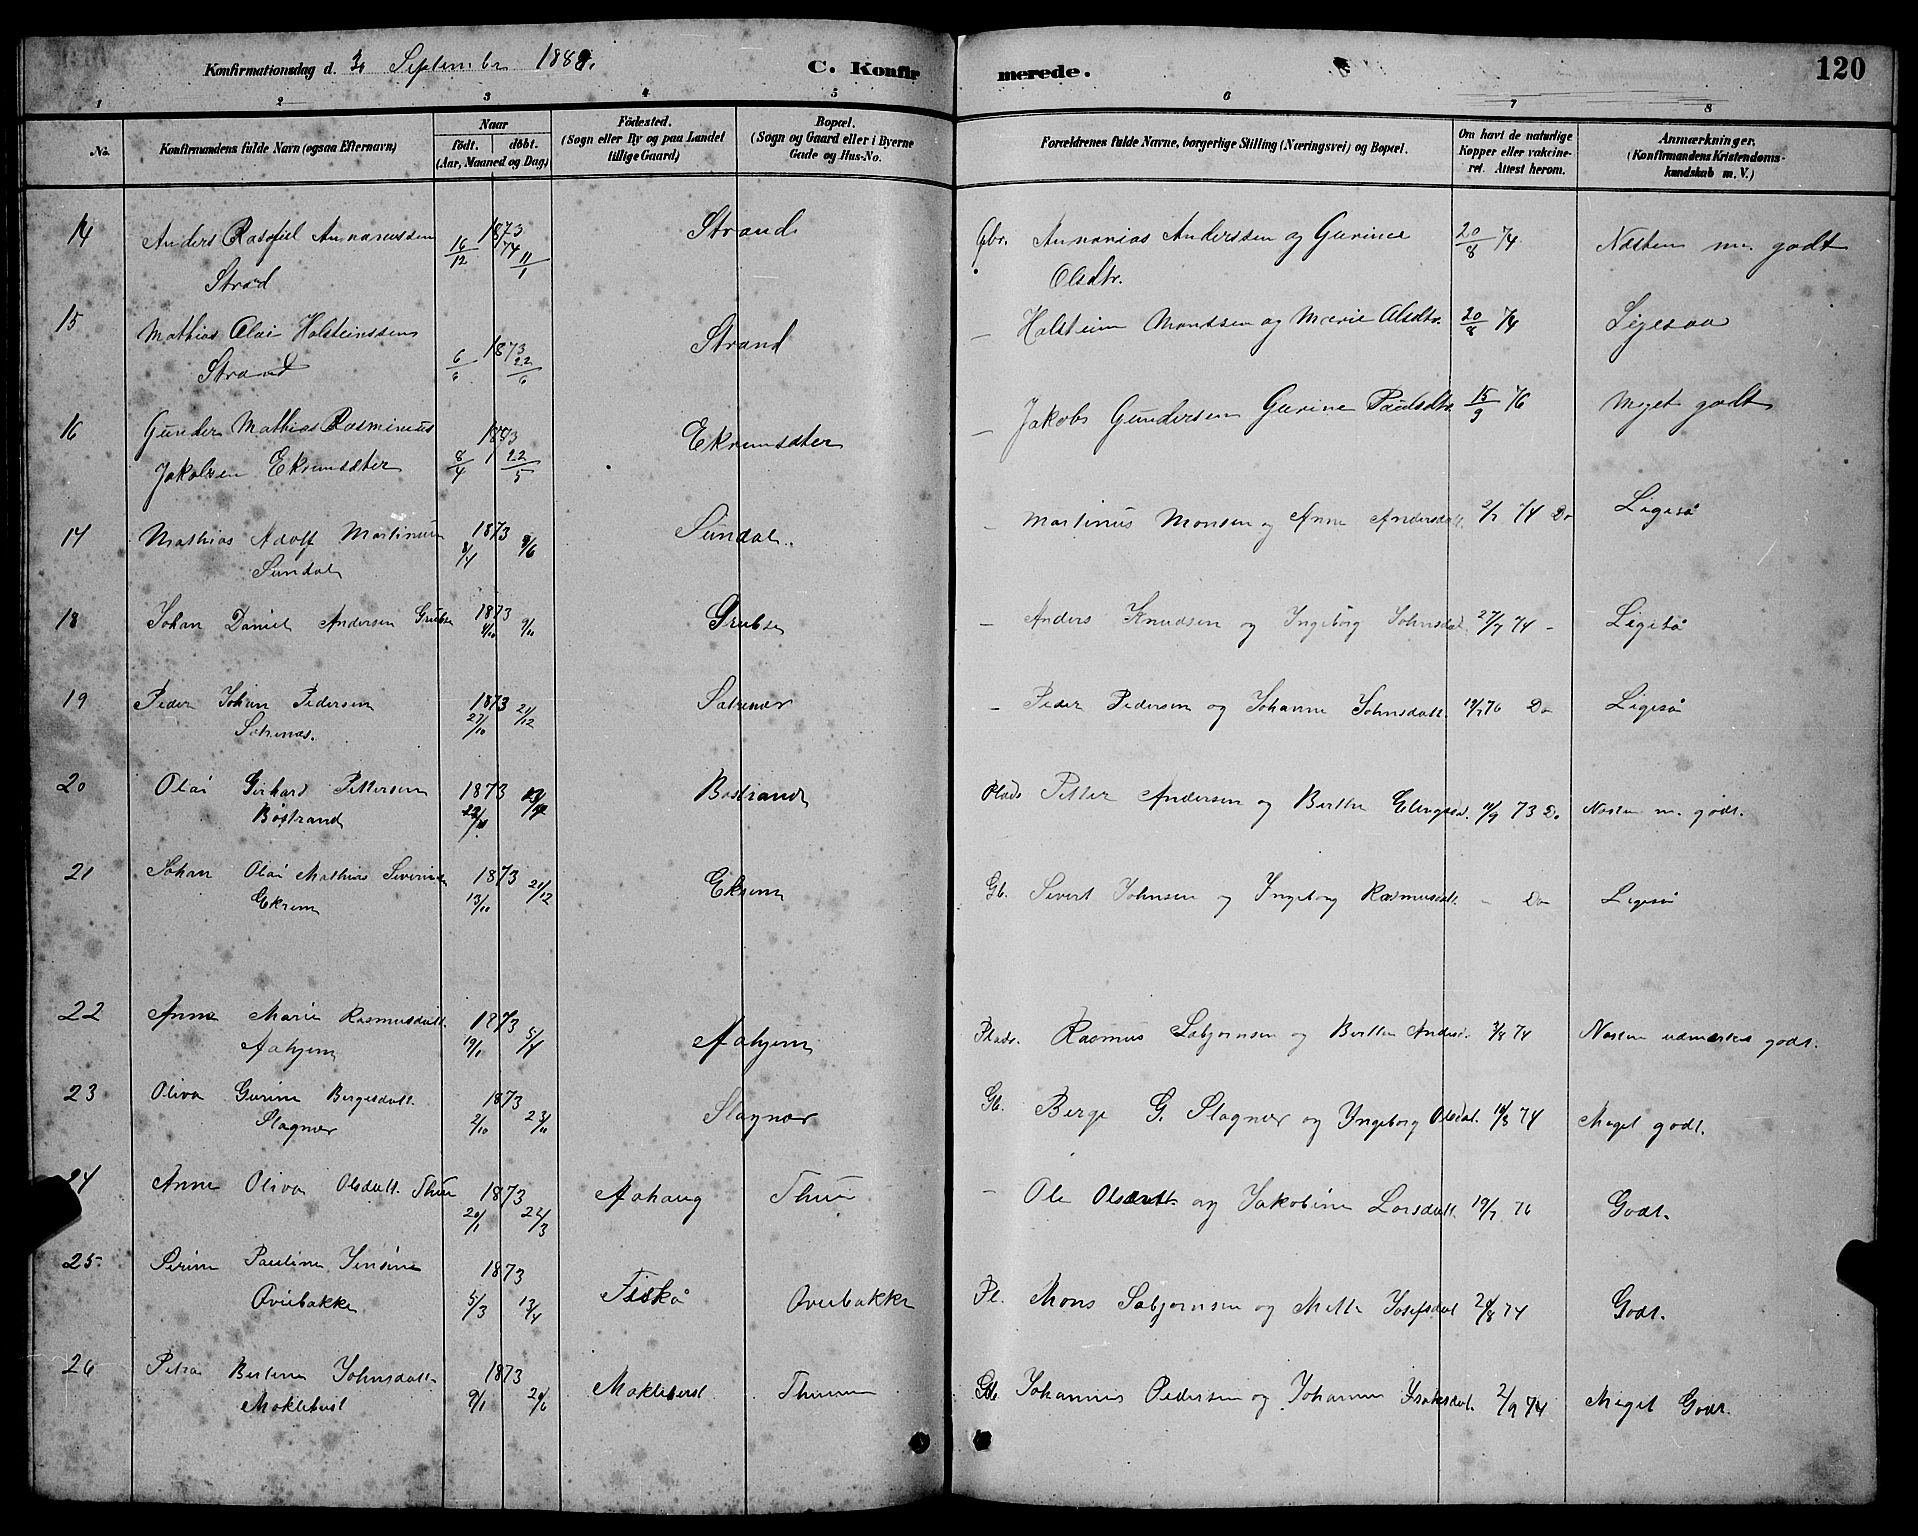 Konfirmationsdag d. 30 September 1888. C. Konfirmerede. 120
1 2 3 4 5 6 7 8
No. Konfirmandens fulde Navn (ogsaa Efternavn)
Naar födt. döbt. (Aar, Maaned og Dag)
Födested. (Sogn eller By og paa Landet tillige Gaard)
Bopæl. (Sogn og Gaard eller i Byerne Gade og Hus-No.
Forældrenes fulde Navne, borgerlige Stilling (Næringsvei) og Bopæl.
Om havt de naturlige Kopper eller vakcineret. Attest herom.
Anmærkninger. (Konfirmandens Kristendomskundskab m. V.)
14 Anders Ananiassen 1873 16/12 74 11/1 Strand Gbr. Annanias Anderssen og Gurine 20/8 74 Næsten m. godt
Strand Olsdtr.
15 Mathias Olai Holsteinssen 1873 6/6 22/6 Strand – Holstein Mondsen og Marie Olsdtr. 20/8 74 Ligesaa
Strand
16 Gunder Mathias Rasminus 1873 8/4 22/5 Eksundsæter – Jakob Gundersen Gurine Paulsdtr. 15/9 76 Meget godt
Jakobsen
14 Mathias Adolf Martinus 1873 8/4 8/6 Sundal. – Martinus Monsen og Anne Andersdatt. 2/7 74 Do Ligeså
Sundal
18 Johan Daniel Andersen Grubse 1873 9/11 Grubse – Anders Knudsen og Ingeborg Johnsdat. 27/7 74 – Ligeså
19 Peder Johan Pedersen 1873 27/10 21/12 – Peder Pedersen og Johanne Johnsdatt. 19/7 76 Do Ligeså
20 Olai Gerhard Pettersen 1873 Böstrand Plads Petter Andersen og Berthe 11/9 73 Do Næsten m. godt.
Böstrand
21 Johan Olai Mathias 1873 13/10 21/12 Eksem Gb. Sivert Johnsen og Ingeborg Rasmusdatt. – Do Ligeså
22 Anne Marie Rasmusdatt. 1873 19/1 5/4 Aahjem Plads. Rasmus Sabjørnsen og Berthe Andersd. 3/8 74 Næsten udmærket godt.
Aahjem
23 Oliva Gurine Bergesdatt. 1873 2/10 23/11 Slagnær Gb. Berge G. Slagnær og Yngeborg Olsdat. 74 Meget godt.
Slagnær
24 Anne Oliva Olsdatt. Thue 1873 20/1 22/3 Aahaug Thue – Ole og Jakobine Larsdatt. 19/7 76 Godt.
25 Perine Pauline Jensine 1873 5/3 13/4 Fiskå Overbakke Pl. Mons Sabjørnsen og Mette Josefsdat 24/8 74 Godt.
Overbakke
26 Petra Berline Johnsdatt. 1873 9/1 Moklebust Gb. Johannes Pedersen og Johanne Isaksdat. 2/9 74 Meget Godt.
Moklebust